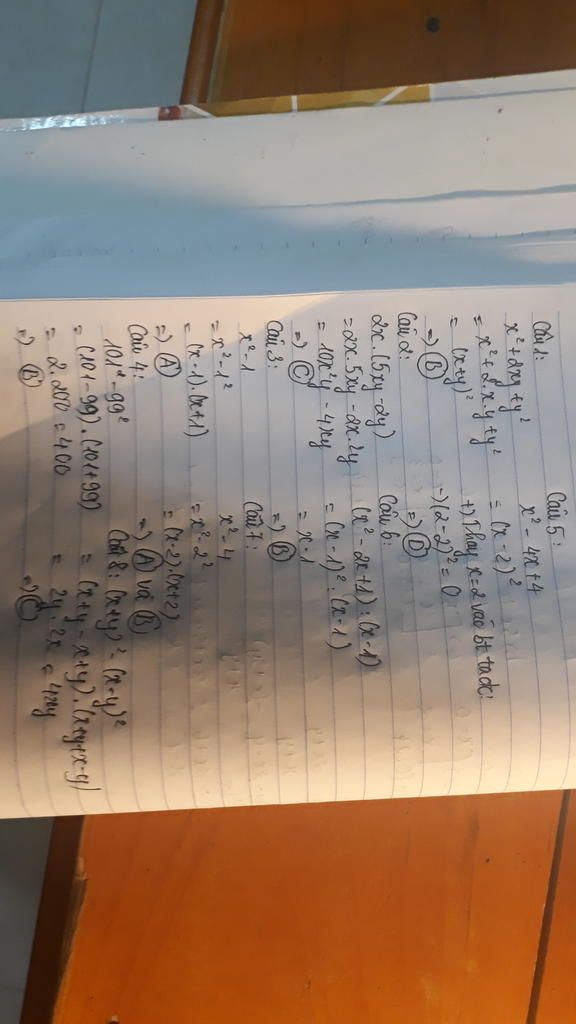 Câu 1:
x² + 2xy + y²
= x² + 2.x.y + y²
= (x+y)²
=) B
Câu 2:
2x.(5xy - 2y)
= 2x.5xy - 2x.2y
= 10x²y - 4xy
=) C
Câu 3:
x² - 1
= x² - 1²
= (x-1).(x+1)
=) A
Câu 4:
101² - 99²
= (101-99).(101+99)
= 2.200 = 400
=) B
Câu 5:
x² - 4x + 4
= (x - 2)²
+) Thay x = 2 vào bt ta đc:
-) (2-2)² = 0
=) D
Câu 6:
(x² - 2x + 1) : (x-1)
= (x-1)² : (x-1)
= x-1
=) B
Câu 7:
x² - 4
= x² - 2²
= (x-2).(x+2)
=) A và B
Câu 8: (x+y)² - (x-y)²
= (x+y-x+y).(x+y+x-y)
= 2y.2x = 4xy
=) C